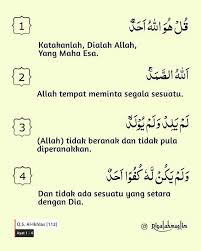 1
قُلْ هُوَ اللّٰهُ اَحَدٌۚ
Katakanlah, Dialah Allah,
Yang Maha Esa.
2
اَللّٰهُ الصَّمَدُۚ
Allah tempat meminta segala sesuatu.
3
لَمْ يَلِدْ وَلَمْ يُوْلَدْۙ
(Allah) tidak beranak dan tidak pula
diperanakkan.
4
وَلَمْ يَكُنْ لَّهٗ كُفُوًا اَحَدٌ
Dan tidak ada sesuatu yang setara
dengan Dia.
Q.S. Al-Ikhlas [112]
Ayat 1 - 4